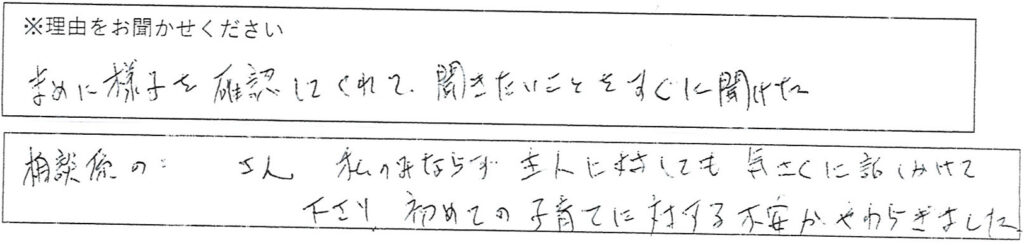 ※理由をお聞かせください
まめに様子を確認してくれて、聞きたいことをすぐに聞けた
相談係の: さん 私のみならず主人に対しても気さくに話しかけて
下さり 初めての子育てに対する不安がやわらぎました